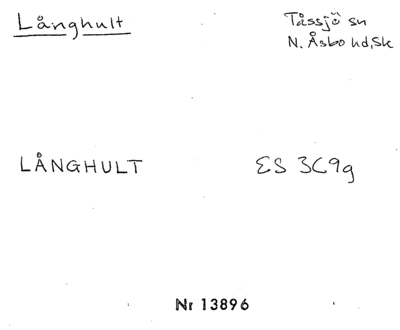 Långhult
Tåssjö sn
N. Åsbo hd, Sk
LÅNGHULT
ES 3C9g
Nr 13896